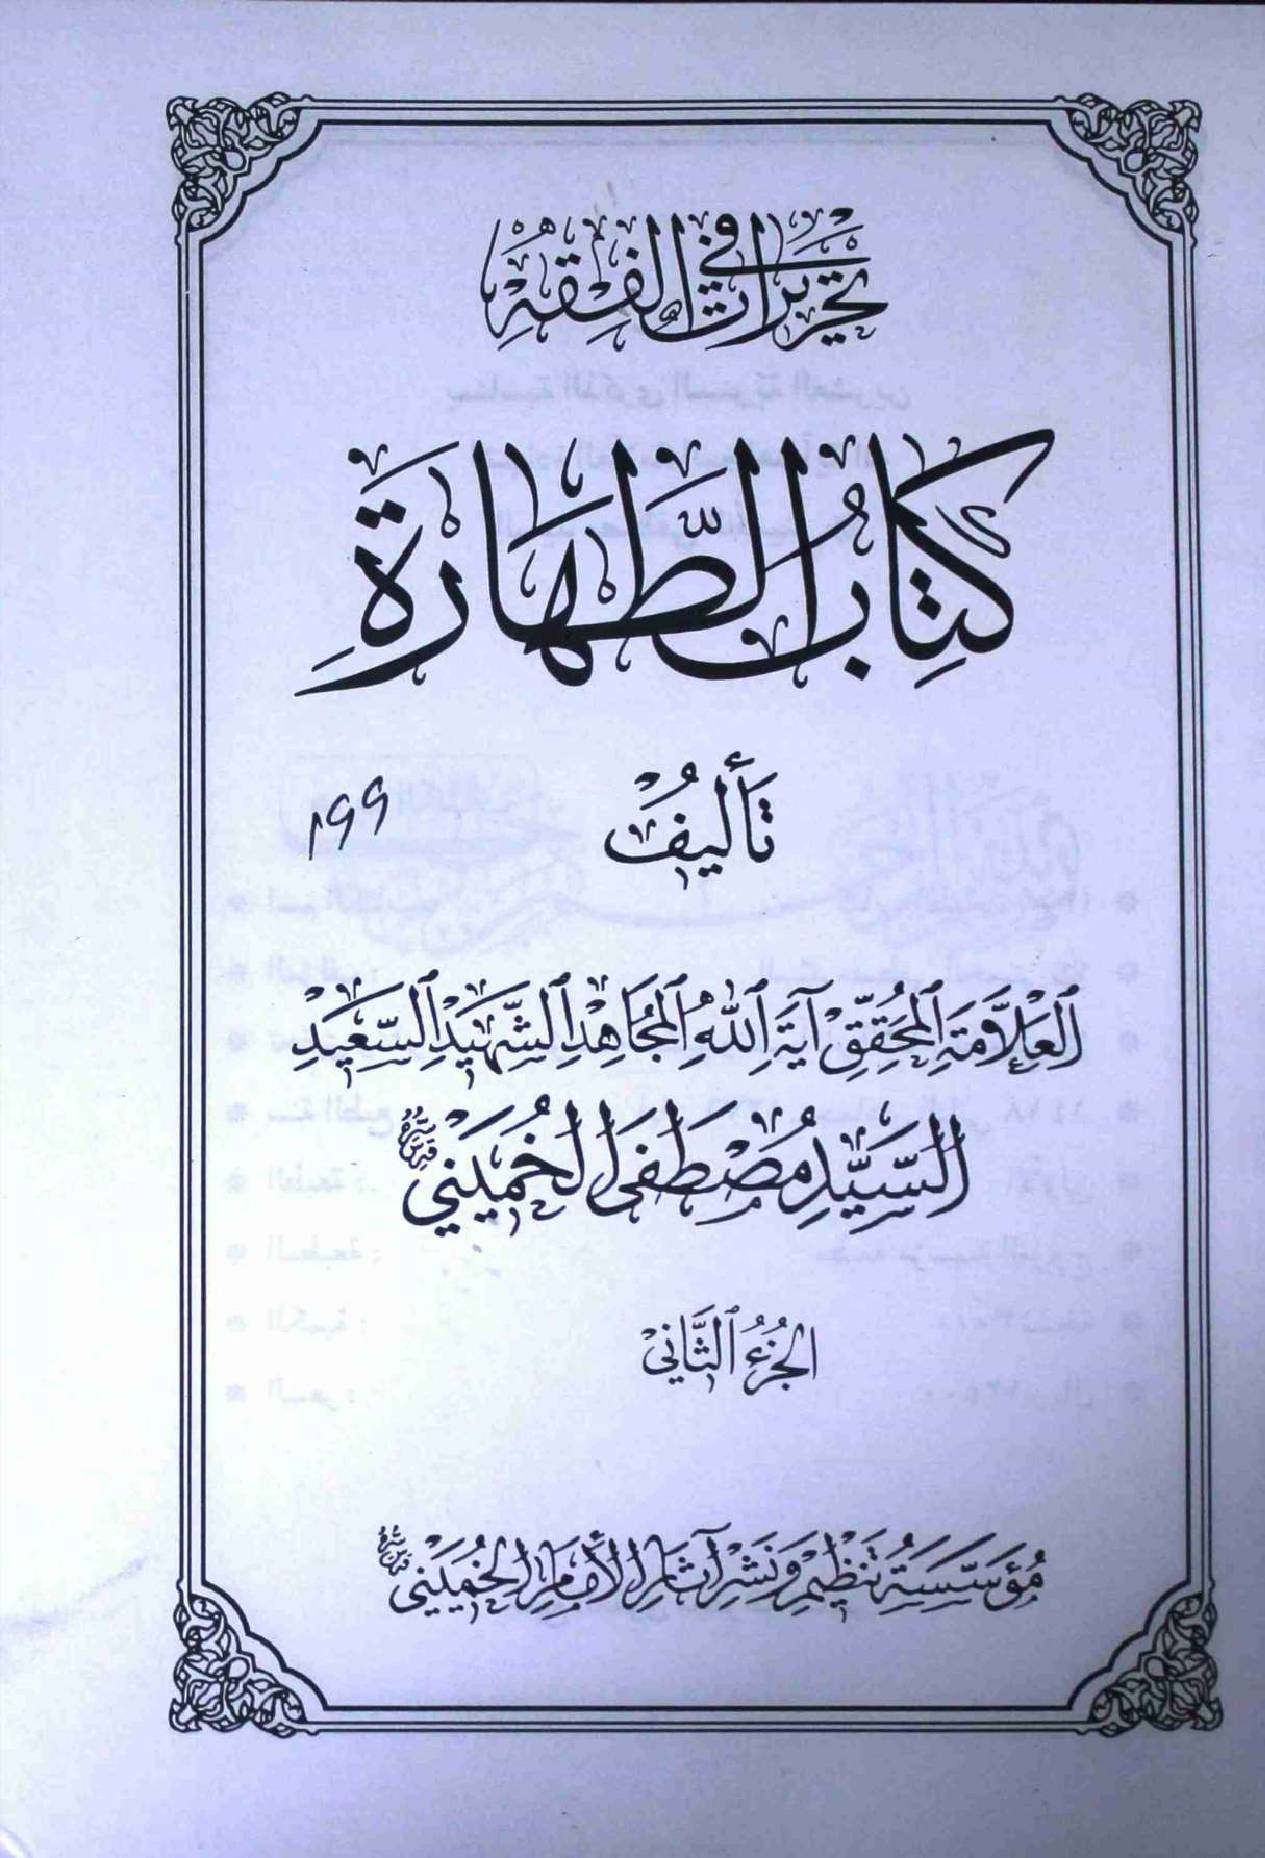 تحريرات في الفقه
كتاب الطهارة
تأليف
١٩٩
العلامة المحقق آية الله المجاهد الشهيد السعيد
السيد مصطفى الخميني
الجزء الثاني
مؤسسة تنظيم ونشر آثار الإمام الخميني